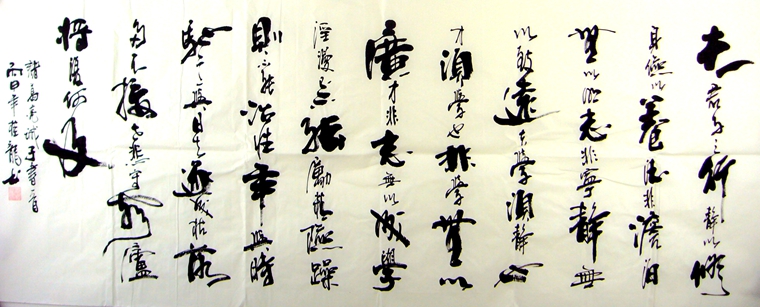 夫君子之行静以修
身儉以養德非澹泊
無以明志非寧静無
以致遠夫學須静也
才須學也非學無以
廣才非志無以成學
淫漫不能勵精險躁
則不能治性年與時
馳意與日去遂成枯落
多不接世悲守窮廬
將復何及
諸葛亮誡子書